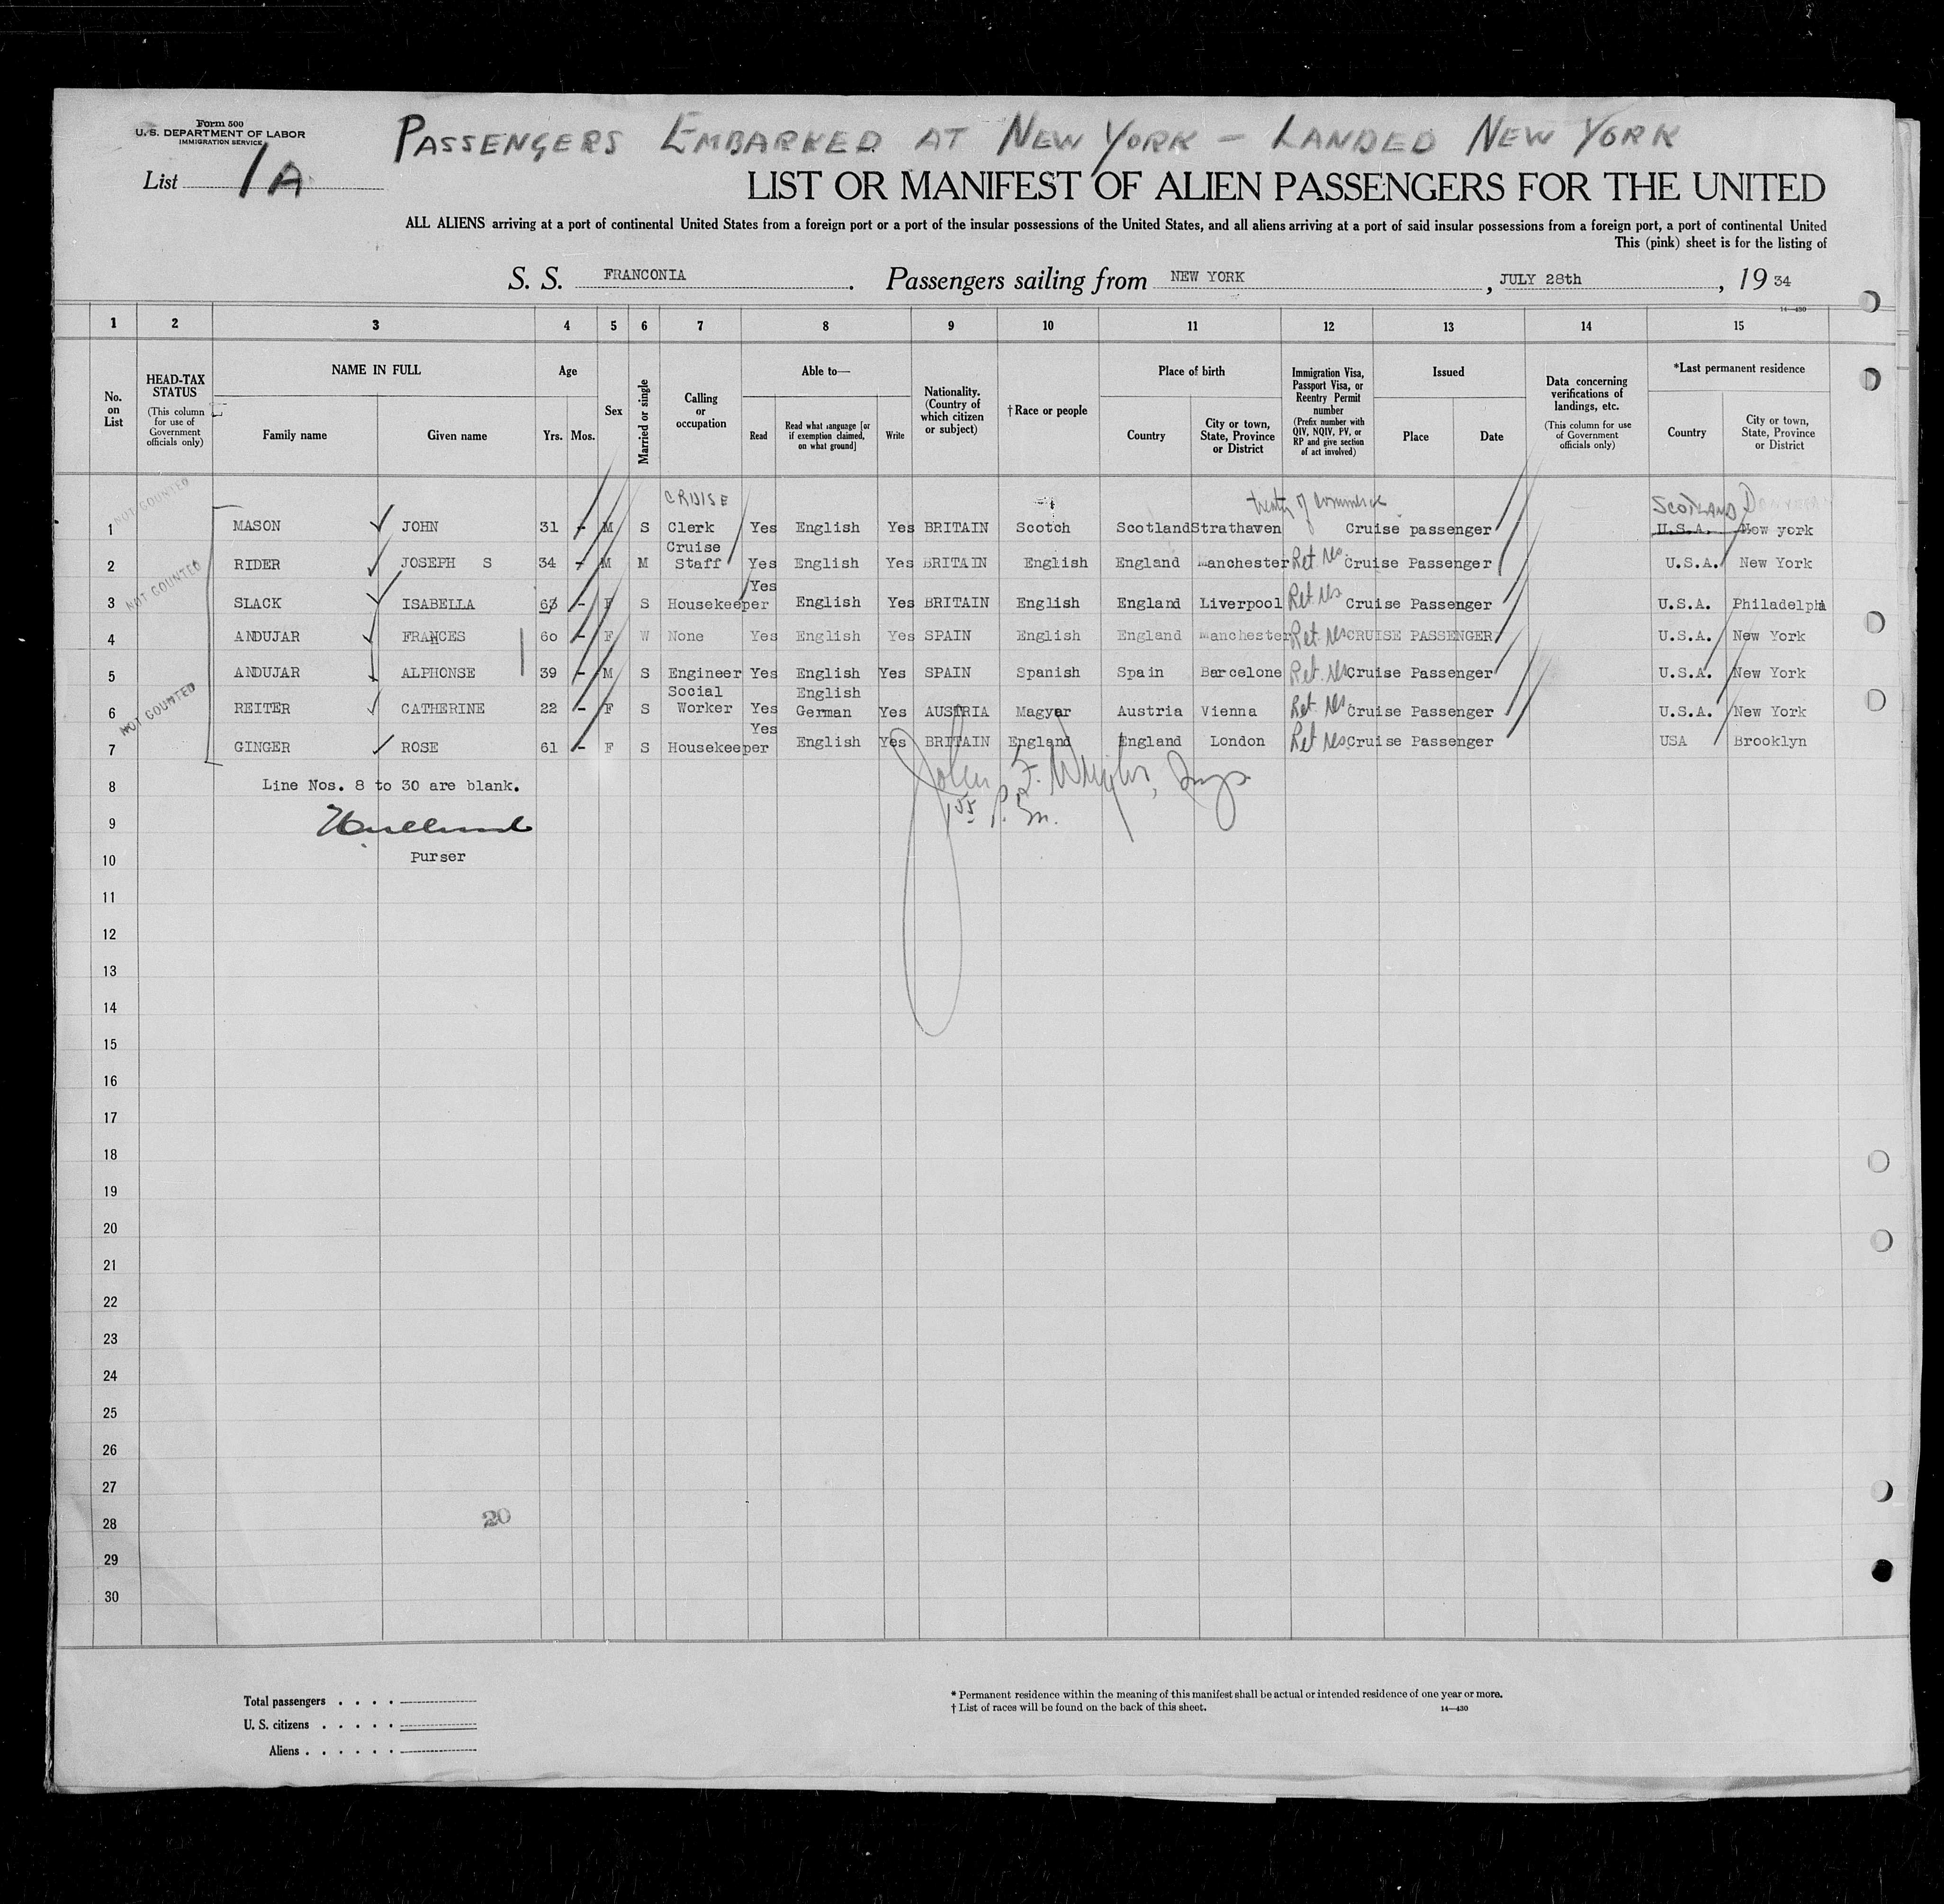 Form 500
U. S. DEPARTMENT OF LABOR
IMMIGRATION SERVICE
PASSENGERS EMBARKED AT NEW YORK — LANDED NEW YORK
List 1A
LIST OR MANIFEST OF ALIEN PASSENGERS FOR THE UNITED
ALL ALIENS arriving at a port of continental United States from a foreign port or a port of the insular possessions of the United States, and all aliens arriving at a port of said insular possessions from a foreign port, a port of continental United
This (pink) sheet is for the listing of
S. S. FRANCONIA. Passengers sailing from NEW YORK, JULY 28th, 19 34
14—430
1 2 3 4 5 6 7 8 9 10 11 12 13 14 15
No. on List
HEAD-TAX STATUS (This column for use of Government officials only)
NAME IN FULL
Family name Given name
Age
Yrs. Mos.
Sex
Married or single
Calling or occupation
Able to—
Read
Read what language [or if exemption claimed, on what ground]
Write
Nationality. (Country of which citizen or subject)
†Race or people
Place of birth
Country
City or town, State, Province or District
Immigration Visa, Passport Visa, or Reentry Permit number (Prefix number with QIV, NQIV, PV, or RP and give section of act involved)
Issued
Place Date
Data concerning verifications of landings, etc. (This column for use of Government officials only)
*Last permanent residence
Country
City or town, State, Province or District
NOT COUNTED
CRUISE
treaty of commerce
SCOTLAND
1 MASON JOHN 31 - M S Clerk Yes English Yes BRITAIN Scotch Scotland Strathaven Cruise passenger U.S.A. New york
2 RIDER JOSEPH S 34 - M M Cruise Staff Yes English Yes BRITAIN English England Manchester Ret res Cruise Passenger U.S.A. New York
NOT COUNTED
3 SLACK ISABELLA 63 - F S Housekeeper Yes English Yes BRITAIN English England Liverpool Ret res Cruise Passenger U.S.A. Philadelphia
4 ANDUJAR FRANCES 60 - F W None Yes English Yes SPAIN English England Manchester Ret. res CRUISE PASSENGER U.S.A. New York
5 ANDUJAR ALPHONSE 39 - M S Engineer Yes English Yes SPAIN Spanish Spain Barcelone Ret. res Cruise Passenger U.S.A. New York
NOT COUNTED
6 REITER CATHERINE 22 - F S Social Worker Yes English German Yes AUSTRIA Magyar Austria Vienna Ret. res Cruise Passenger U.S.A. New York
7 GINGER ROSE 61 - F S Housekeeper Yes English Yes BRITAIN England England London Ret res Cruise Passenger USA Brooklyn
8 Line Nos. 8 to 30 are blank.
John F.
1 55 P. m.
9
10 purser
11
12
13
14
15
16
17
18
19
20
21
22
23
24
25
26
27
28
20
29
30
Total passengers . . . .
U. S. citizens . . . . .
Aliens . . . . . .
* Permanent residence within the meaning of this manifest shall be actual or intended residence of one year or more.
† List of races will be found on the back of this sheet. 14—430